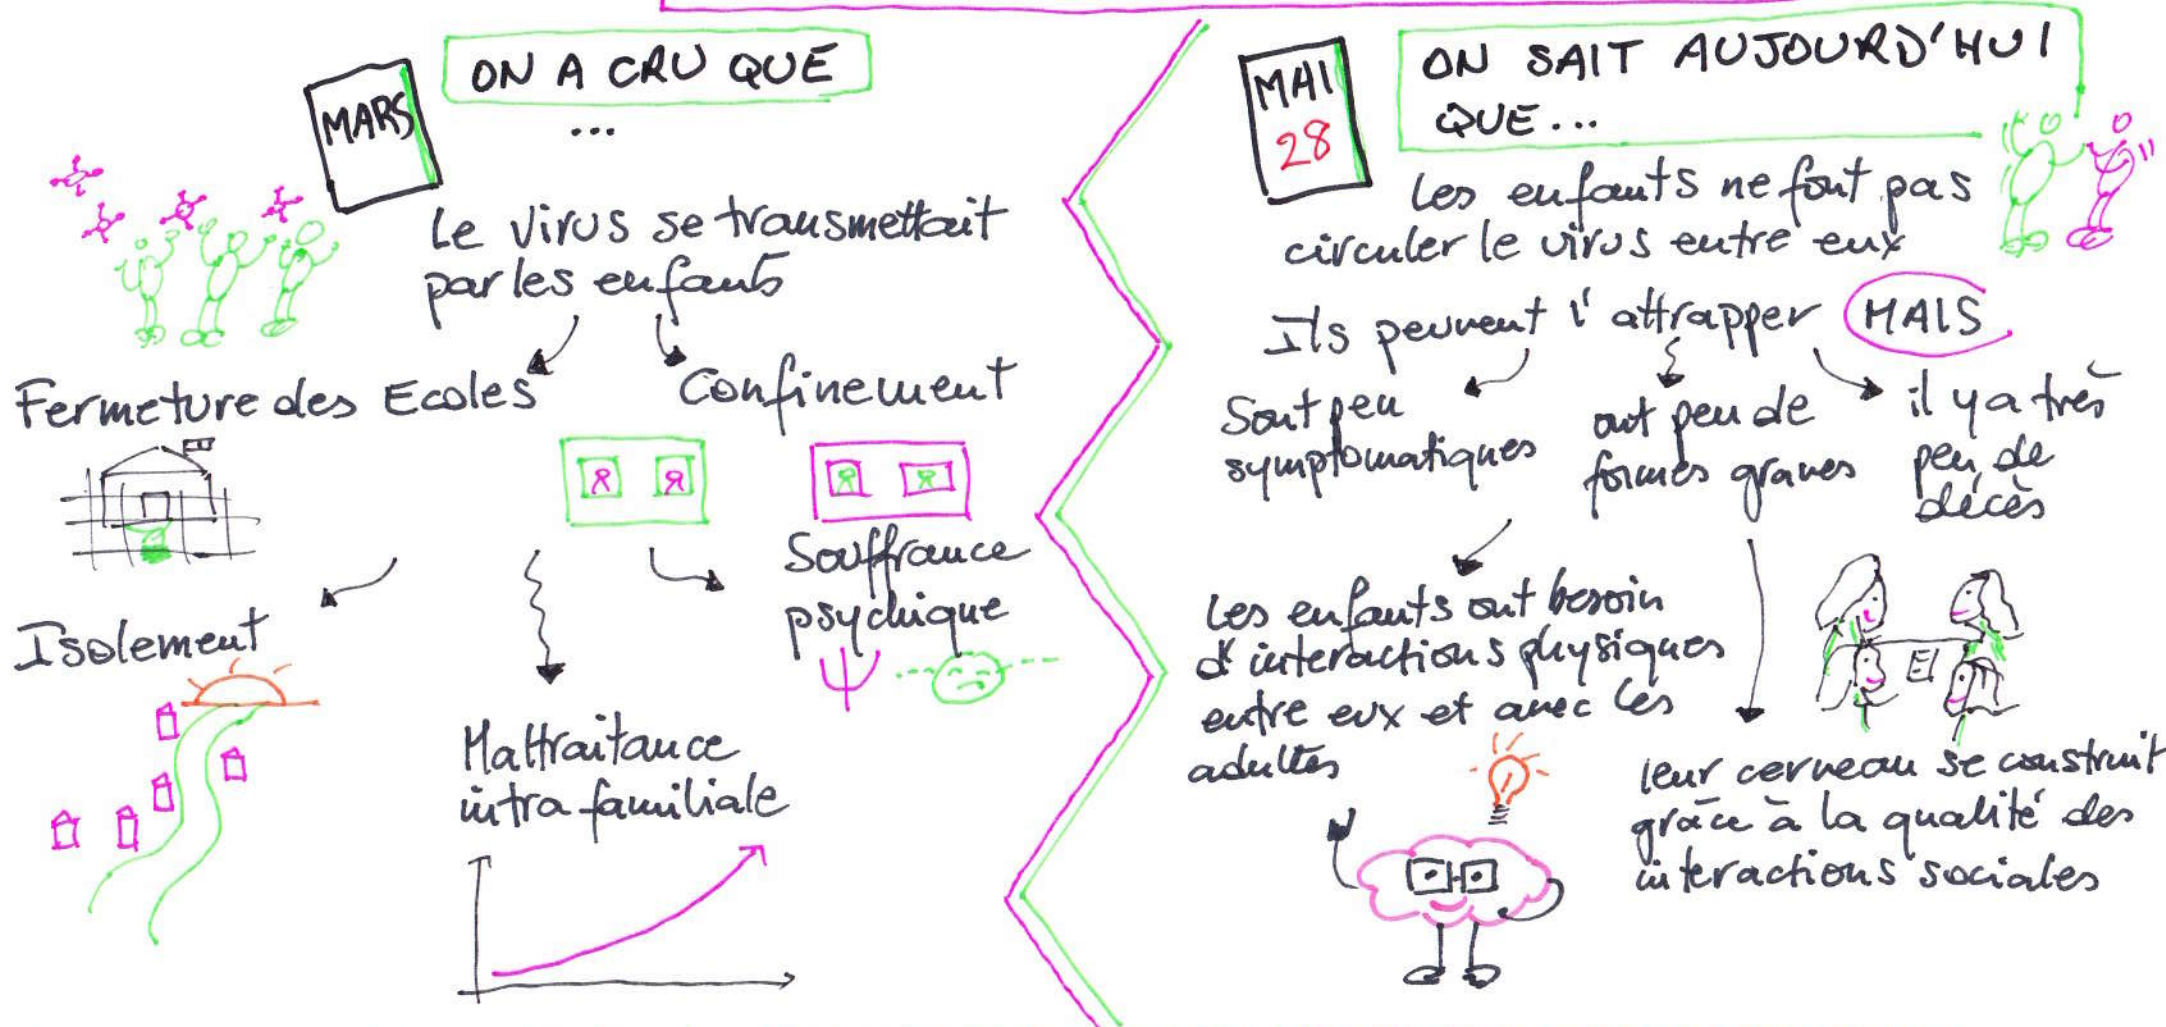 MARS
ON A CRU QUE
...
Le virus se transmettait
par les enfants
Fermeture des Ecoles
Confinement
Isolement
Maltraitance
intra familiale
Souffrance
psychique
MAI
28
ON SAIT AUJOURD'HUI
QUE...
Les enfants ne font pas
circuler le virus entre eux
Ils peuvent l'attrapper MAIS
Sont peu
symptomatiques
ont peu de
formes graves
il y a très
peu de
décès
Les enfants ont besoin
d'interactions physiques
entre eux et avec les
adultes
leur cerveau se construit
grâce à la qualité des
interactions sociales